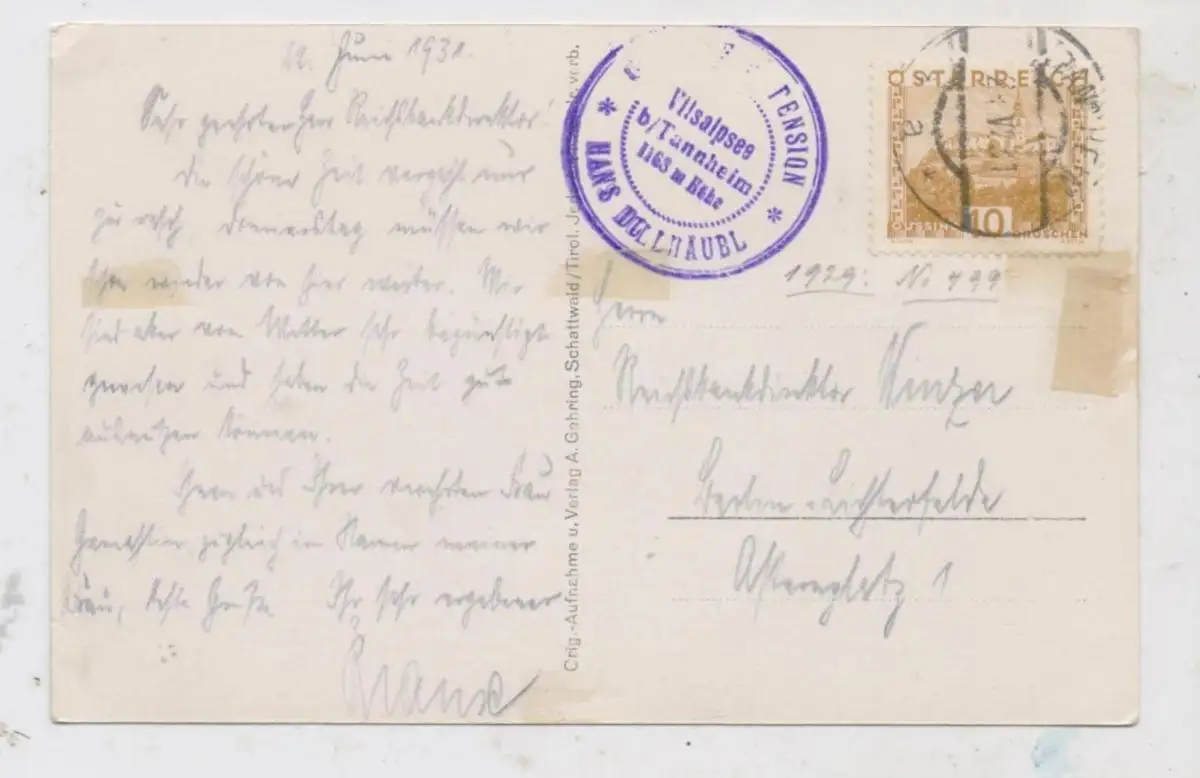 Juni 1931.
Sehr geehrter Herr Reichsbankdirektor!
Die schöne Zeit vergeht nur
zu rasch, Donnerstag müssen wir
schon wieder von hier weiter. Wir
sind aber vom Wetter sehr begünstigt
worden und haben die Zeit gut
ausnutzen können.
Ihnen und Ihrer verehrten Frau
Gemahlin zugleich im Namen meiner
Frau, beste Grüße Ihr sehr ergebener
Orig.-Aufnahme u. Verlag A. Gehring, Schattwald/Tirol.
PENSION
Vilsalpsee
b/Tannheim
1168 m Höhe
* HANS *
ÖSTERREICH
10 GROSCHEN
1929: No 499
Herrn
Reichsbankdirektor
Berlin-Lichterfelde
Asternplatz 1